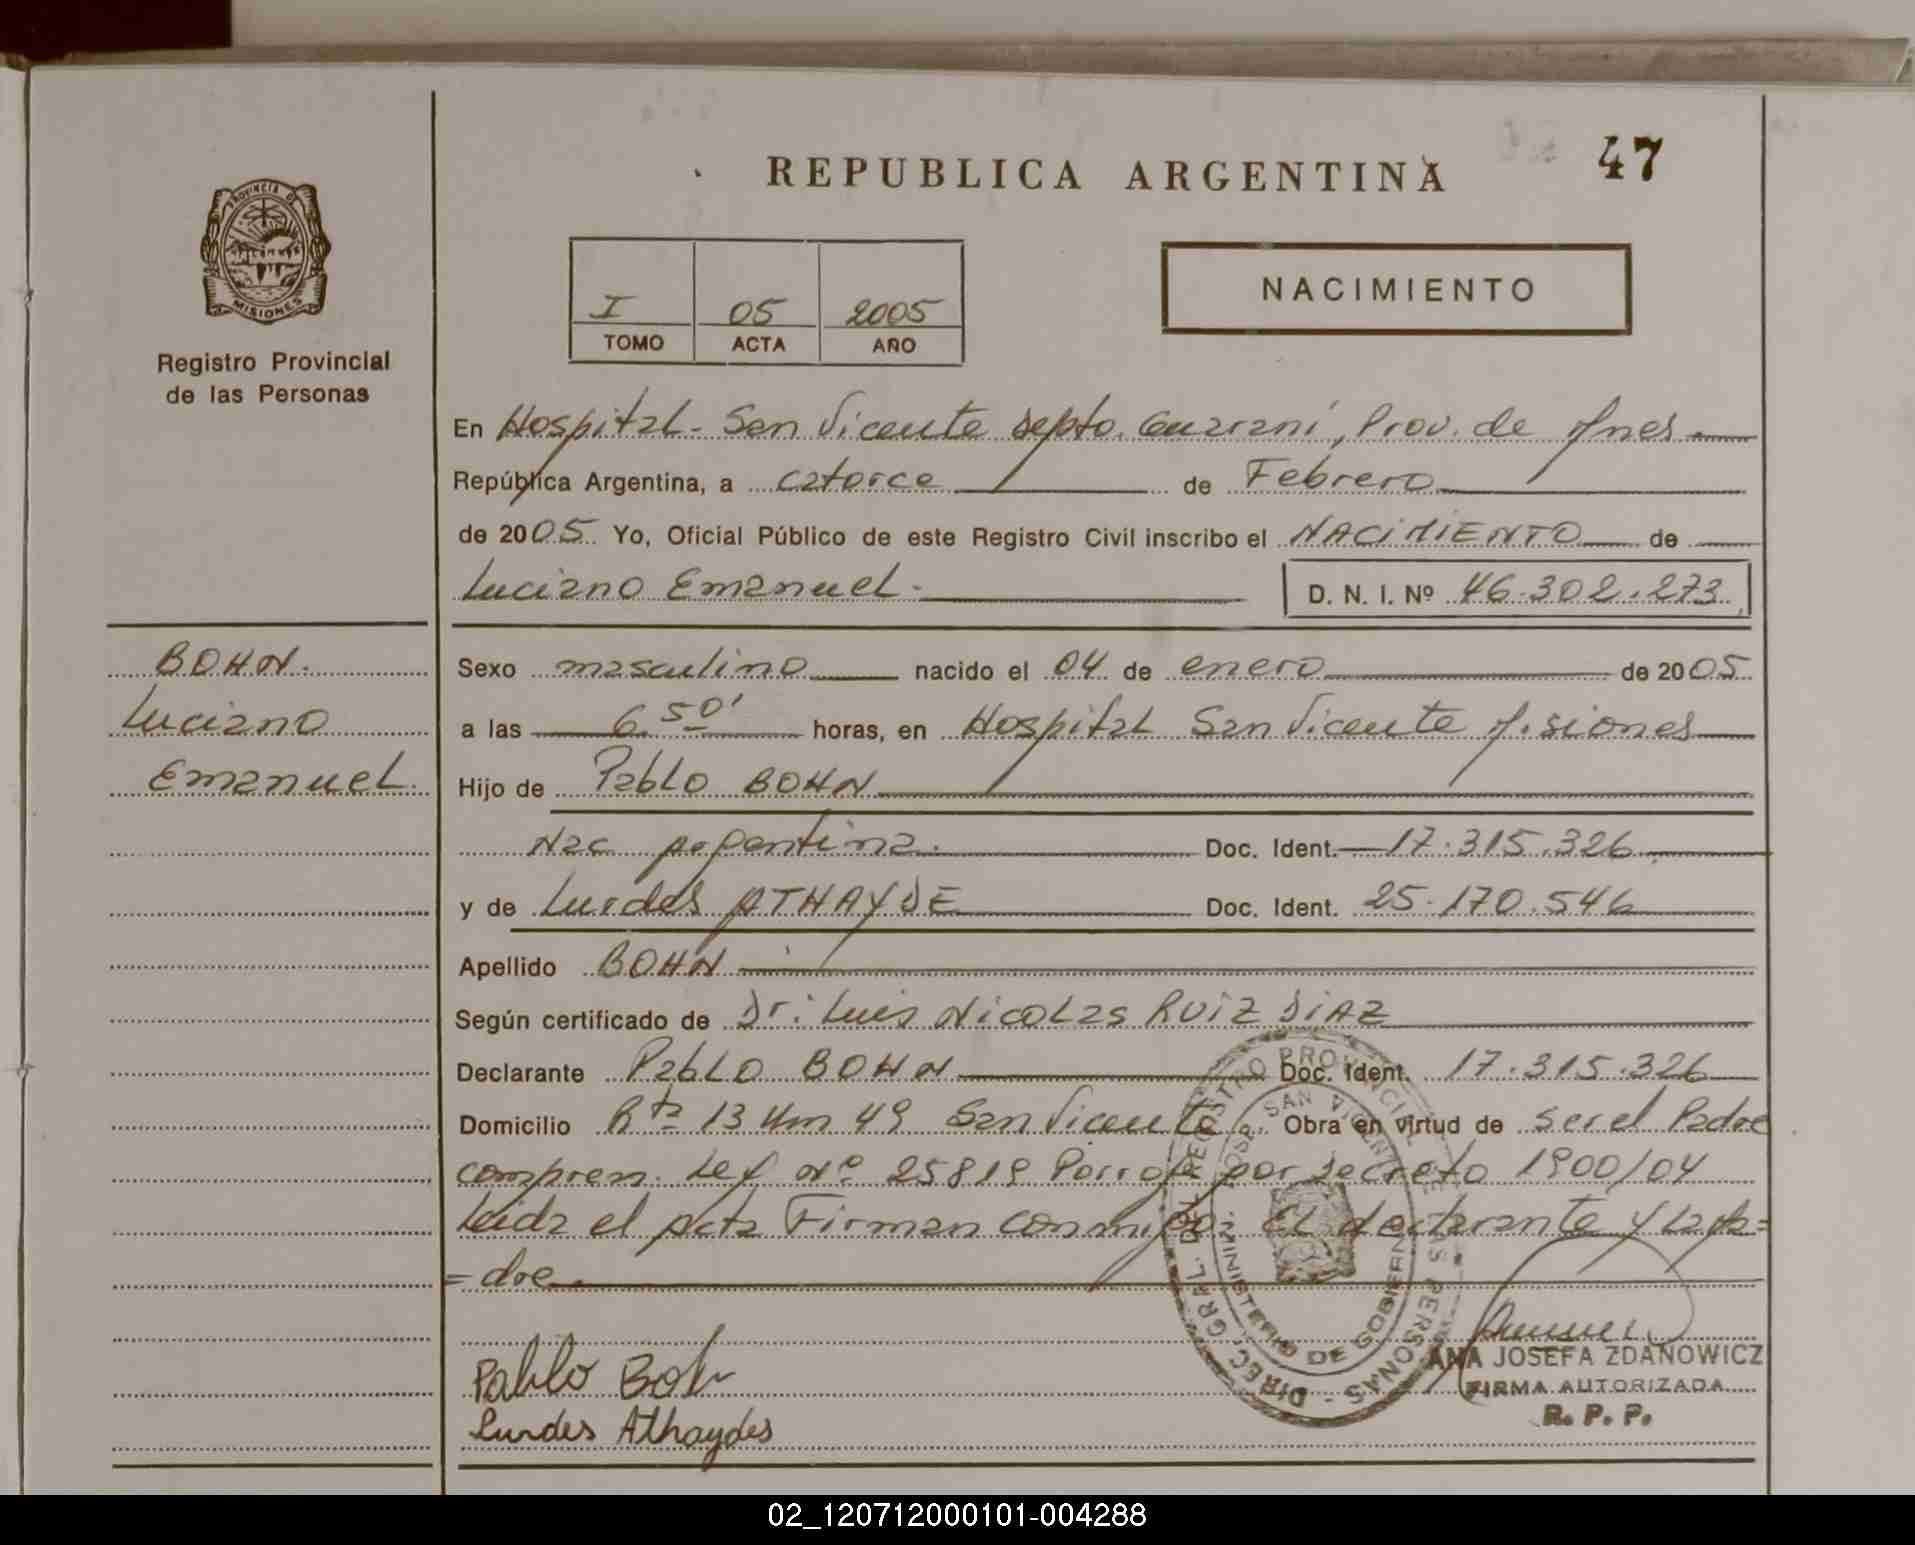 REPUBLICA ARGENTINA
47
PROVINCIA DE MISIONES
Registro Provincial
de las Personas
I 05 2005
TOMO ACTA AÑO
NACIMIENTO
En Hospital - San Vicente Depto. Guarani, Prov. de Mnes
República Argentina, a catorce de Febrero
de 2005 Yo, Oficial Público de este Registro Civil inscribo el NACIMIENTO de
Luciano Emanuel.
D. N. I. Nº 46.302.273
BOHN.
Luciano
Emanuel.
Sexo masculino nacido el 04 de enero de 2005
a las 6 50' horas, en Hospital San Vicente Misiones
Hijo de Pablo BOHN
Nac Argentina. Doc. Ident. 17.315.326
y de Lurdes ATHAYDE Doc. Ident. 25.170.546
Apellido BOHN
Según certificado de Dr: Luis Nicolas RUIZ DIAZ
Declarante Pablo BOHN Doc. Ident. 17.315.326
Domicilio Rta 13 Km 49 San Vicente. Obra en virtud de ser el Padre
compren. Ley Nº 25819 Porrog por Decreto 1900/04
Leida el Acta Firman conmigo: El declarante y La Ma=
= dre.
DIREC. GRAL. DEL REGISTRO PROVINCIAL DE LAS PERSONAS
SAN VICENTE
MINISTERIO DE GOBIERNO
Pablo Bohn
Lurdes Athaydes
ANA JOSEFA ZDANOWICZ
FIRMA AUTORIZADA
R. P. P.
02_120712000101-004288